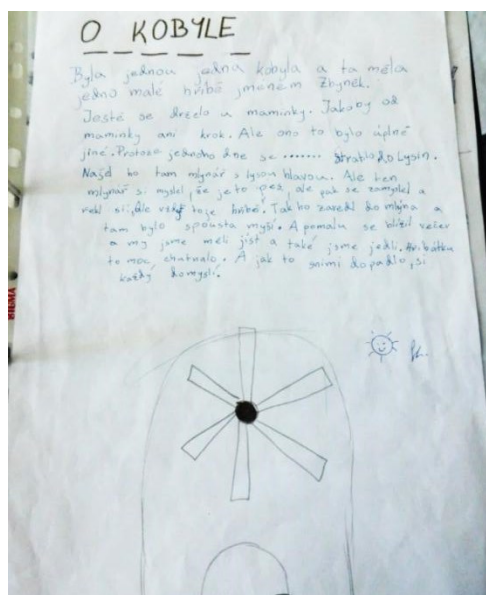 O KOBYLE
Byla jednou jedna kobyla a ta měla
jedno malé hříbě jménem Zbyněk.
Ještě se drželo u maminky. Jakoby od
maminky ani krok. Ale ono to bylo úplně
jiné. Protože jednoho dne se ....... stratilo do Lysin.
Našel ho tam mlynář s lysou hlavou. Ale ten
mlynář si myslel, že je to pes, ale pak se zamyslel a
řekl si, ale vždyť to je hříbě. Tak ho zavedl do mlýna a
tam bylo spousta myší. A pomalu se blížil večer
a my jsme měli jíst a také jsme jedli. Hříbátku
to moc chutnalo. A jak to snimi dopadlo, si
každý domyslí.
BIEMA